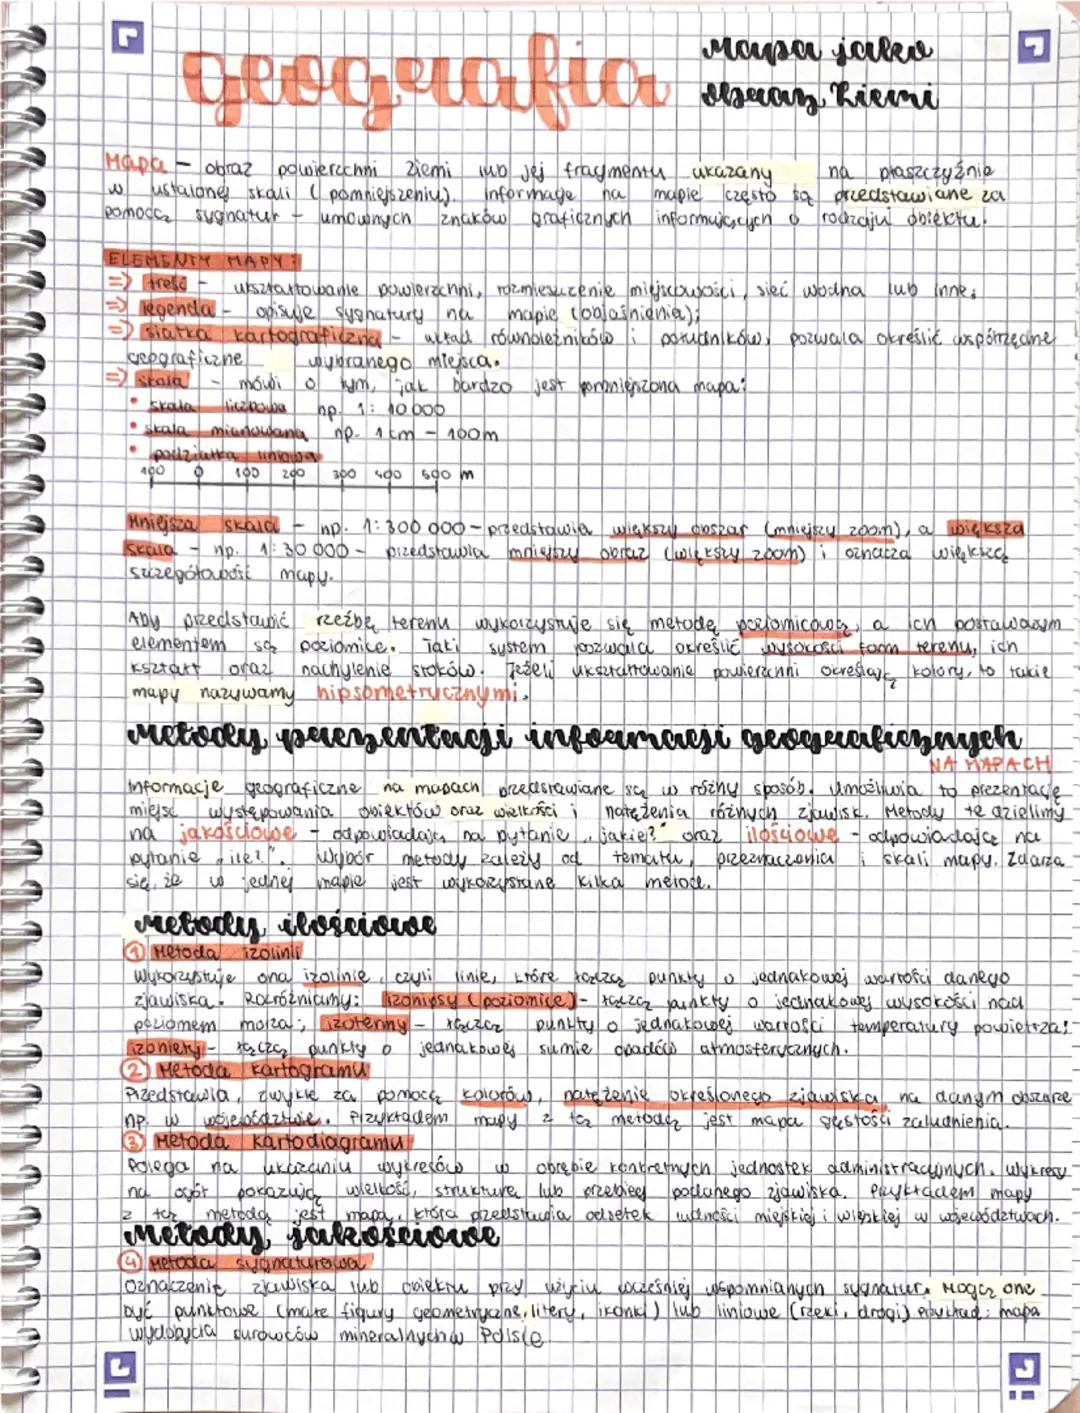 geografia
Mapa jako
obraz Ziemi
Mapa - obraz powierzchni Ziemi lub jej fragmentu ukazany na płaszczyźnie
w ustalonej skali (pomniejszeniu). Informacje na mapie często są przedstawiane za
pomocą sygnatur - umownych znaków graficznych informujących o rodzaju obiektu.
ELEMENTY MAPY:
=> treść - ukształtowanie powierzchni, rozmieszczenie miejscowości, sieć wodna lub inne;
=> legenda - opisuje sygnatury na mapie (objaśnienia);
=> siatka kartograficzna - układ równoleżników i południków, pozwala określić współrzędne
geograficzne wybranego miejsca.
=> skala - mówi o tym, jak bardzo jest pomniejszona mapa:
• skala liczbowa np. 1: 10 000
• skala mianowana np. 1 cm - 100m
• podziałka liniowa
100 0 100 200 300 400 500 m
Mniejsza skala - np. 1:300 000 - przedstawia większy obszar (mniejszy zoom), a większa
skala - np. 1:30 000 - przedstawia mniejszy obraz (większy zoom) i oznacza większą
szczegółowość mapy.
Aby przedstawić rzeźbę terenu wykorzystuje się metodę poziomicową, a ich postawowym
elementem są poziomice. Taki system pozwala określić wysokości form terenu, ich
kształt oraz nachylenie stoków. Jeżeli ukształtowanie powierzchni określają kolory, to takie
mapy nazywamy hipsometrycznymi.
Metody prezentacji informacji geograficznych
NA MAPACH
Informacje geograficzne na mapach przedstawiane są w różny sposób. Umożliwia to prezentację
miejsc występowania obiektów oraz wielkości i natężenia różnych zjawisk. Metody te dzielimy
na jakościowe - odpowiadają na pytanie „jakie?" oraz ilościowe - odpowiadają na
pytanie „ile?". Wybór metody zależy od tematu, przeznaczenia i skali mapy. Zdarza
się, że w jednej mapie jest wykorzystane kilka metod.
Metody ilościowe
1 Metoda izolinii
Wykorzystuje ona izolinie, czyli linie, które łączą punkty o jednakowej wartości danego
zjawiska. Rozróżniamy: izohipsy (poziomice) - łączą punkty o jednakowej wysokości nad
poziomem morza; izotermy - łączą punkty o jednakowej wartości temperatury powietrza;
izohiety - łączą punkty o jednakowej sumie opadów atmosferycznych.
2 Metoda kartogramu
Przedstawia, zwykle za pomocą kolorów, natężenie określonego zjawiska na danym obszarze
np. w województwie. Przykładem mapy z tą metodą jest mapa gęstości zaludnienia.
3 Metoda kartodiagramu
Polega na ukazaniu wykresów w obrębie konkretnych jednostek administracyjnych. Wykresy
na ogół pokazują wielkość, strukturę lub przebieg podanego zjawiska. Przykładem mapy
z tą metodą jest mapa, która przedstawia odsetek ludności miejskiej i wiejskiej w województwach.
Metody jakościowe
4 Metoda sygnaturowa
Oznaczenie zjawiska lub obiektu przy użyciu wcześniej wspomnianych sygnatur. Mogą one
być punktowe (małe figury geometryczne, litery, ikonki) lub liniowe (rzeki, drogi) Przykład: mapa
wydobycia surowców mineralnych w Polsce